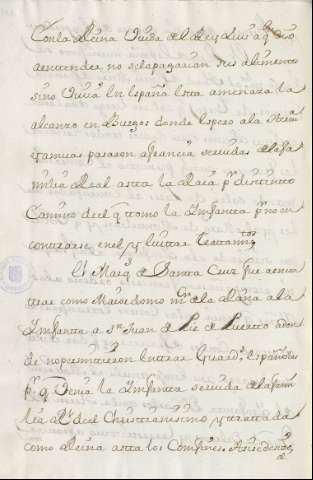 Con la Reina Viuda del Rey Luis a qn dio
a entender no se la pagarian sus alimentos
sino Vivia en España. Esta amenaza la
alcanzo en Burgos donde espero a la Reina
y ambas pasaron a Francia servidas de la fa
milia Real asta la Raia pr distinto
Camino de el q tomo la Infanta pr no en
contrarse en el y evitar
El Marqs de Santa Cruz fue a encon
trar como Maiordomo mor de la Reina a la
Infanta a Sn Juan de Pie de Puerto adon
de no permitieron entrar Guards Españoles
pr q Venia la Infanta servida de la fam
ilia Rl de el Christianisimo y tratada
como Reina asta los Confines